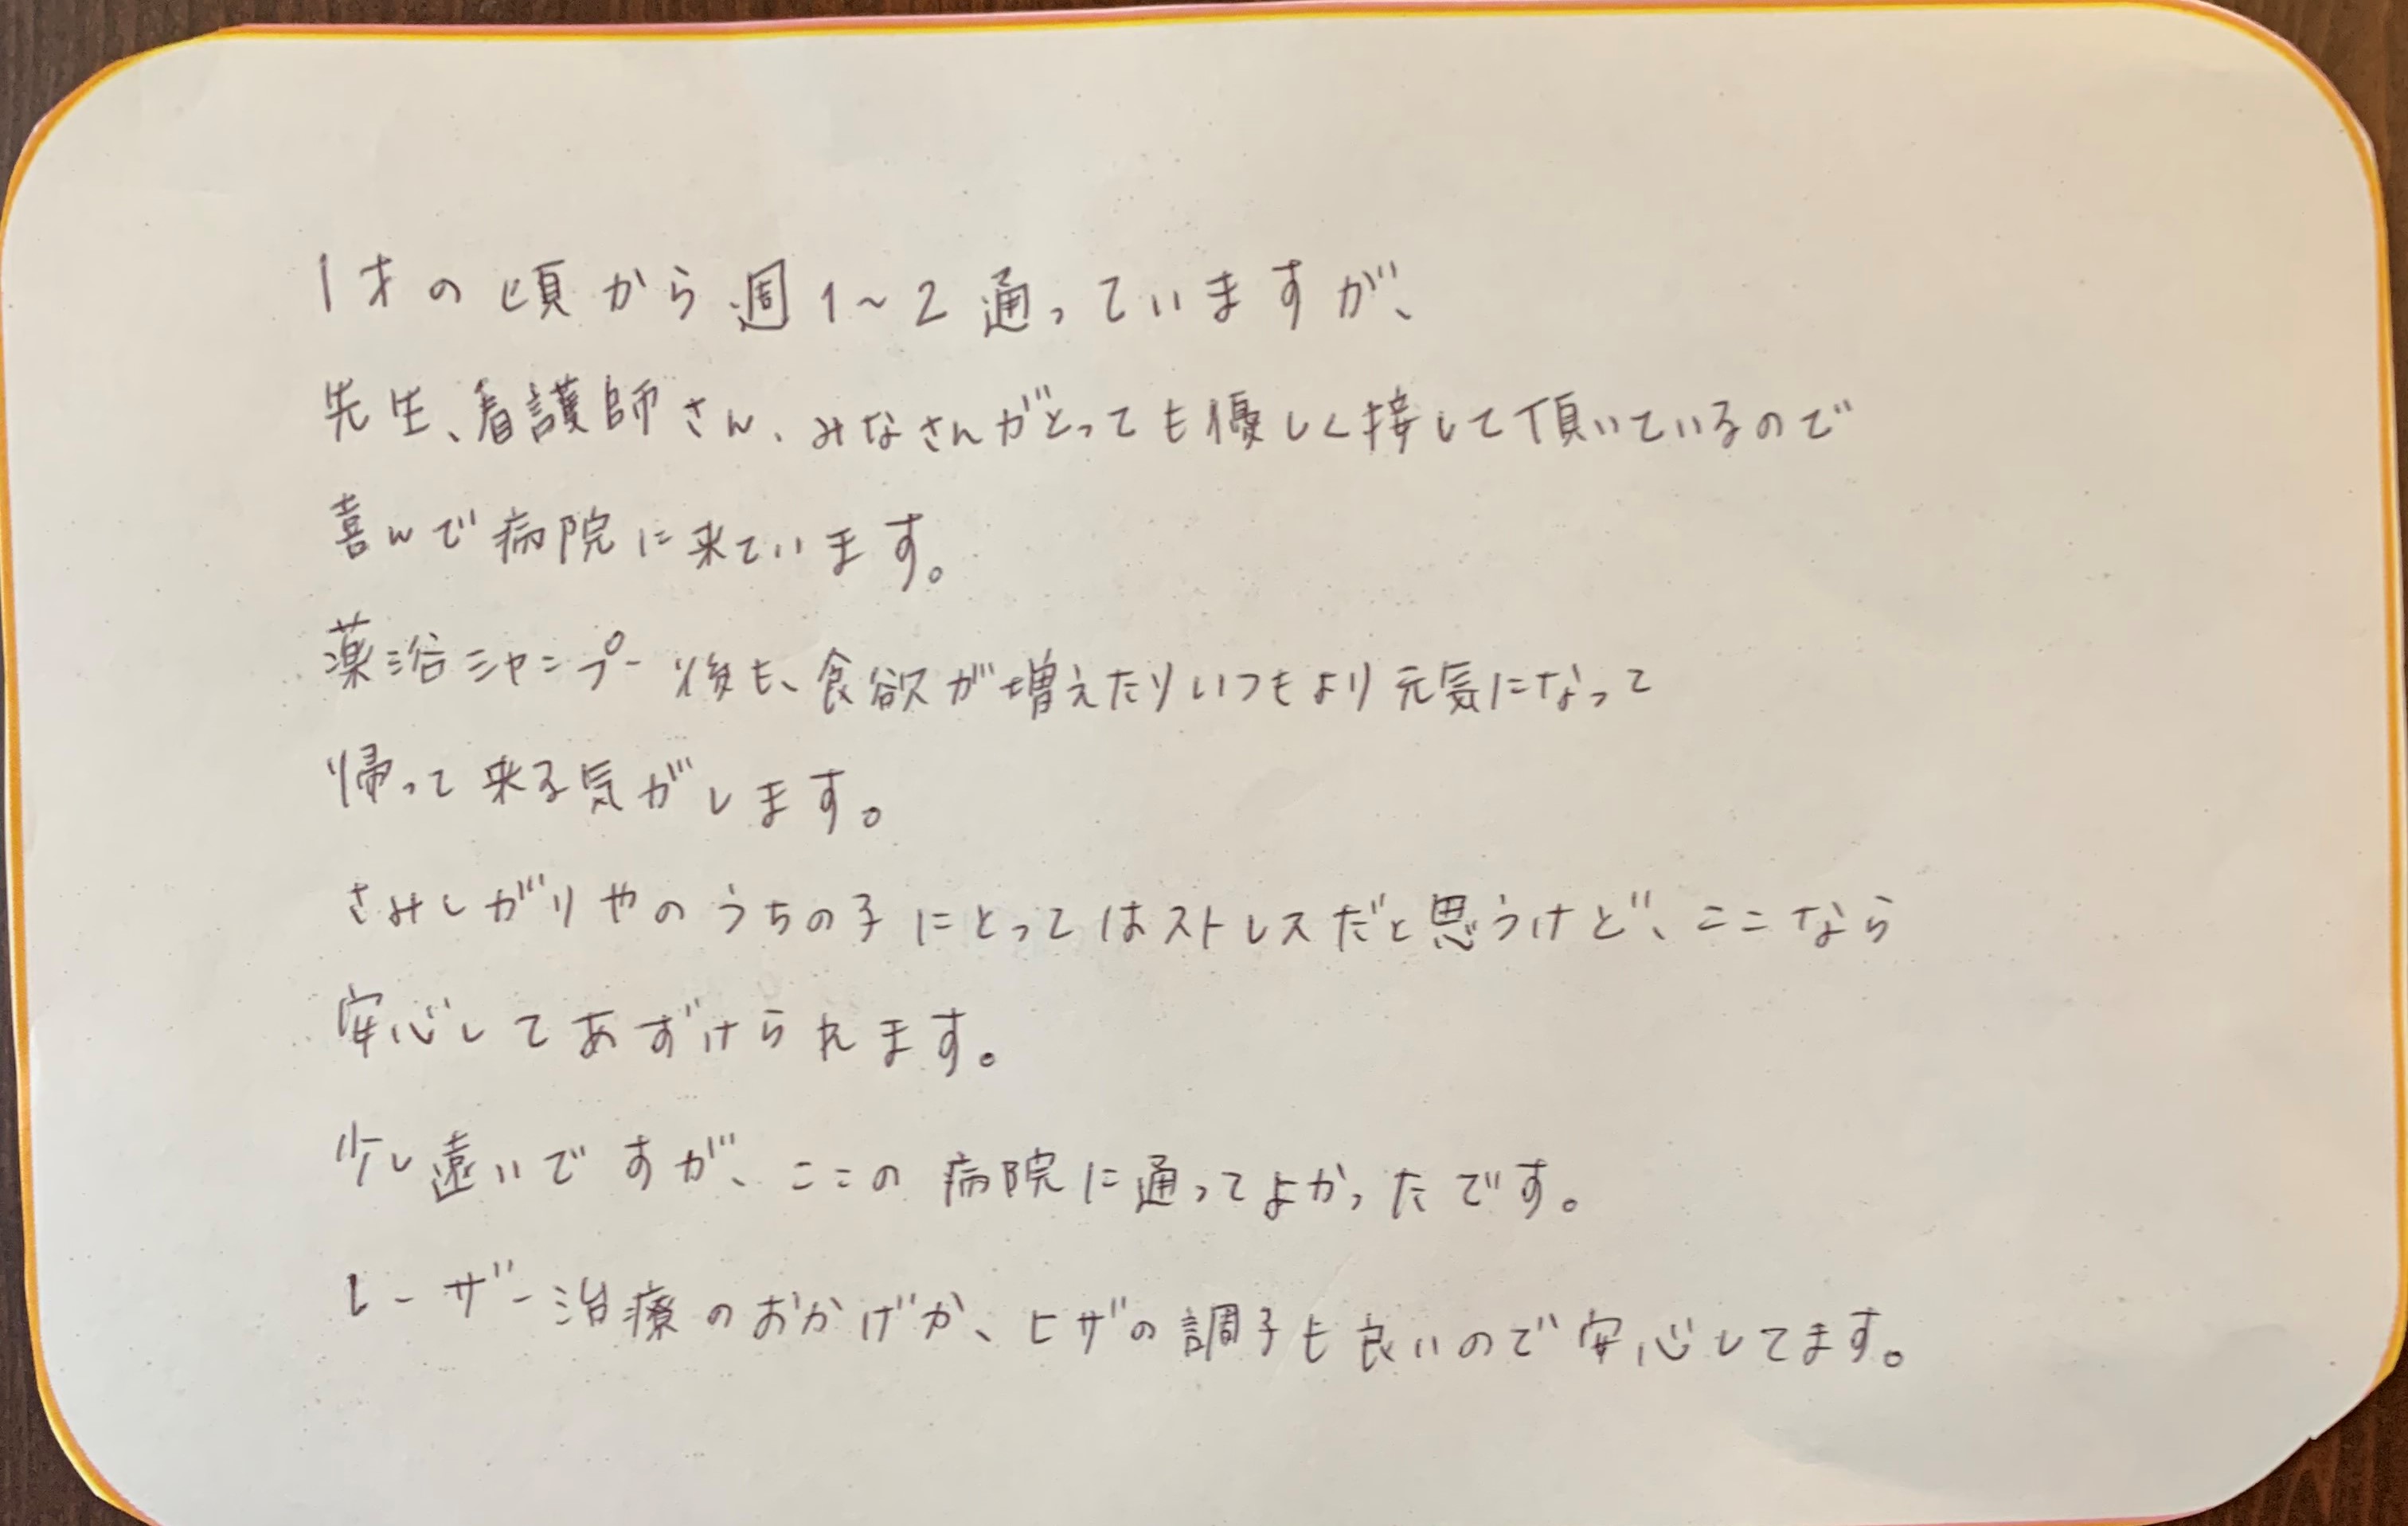 1才の頃から週1~2通っていますが、
先生、看護師さん、みなさんがとっても優しく接して頂いているので
喜んで病院に来ています。
薬浴シャンプー後も、食欲が増えたりいつもより元気になって
帰って来る気がします。
さみしがりやのうちの子にとってはストレスだと思うけど、ここなら
安心してあずけられます。
少し遠いですが、ここの病院に通ってよかったです。
レーザー治療のおかげか、ヒザの調子も良いので安心してます。